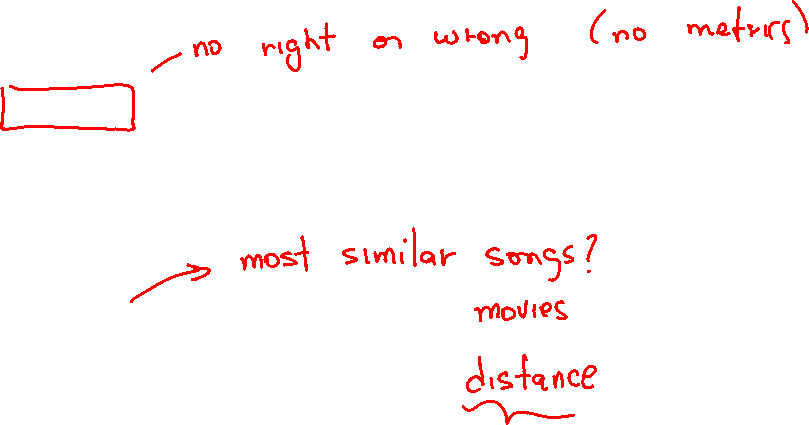 no right or wrong (no metrics)
most similar songs?
movies
distance